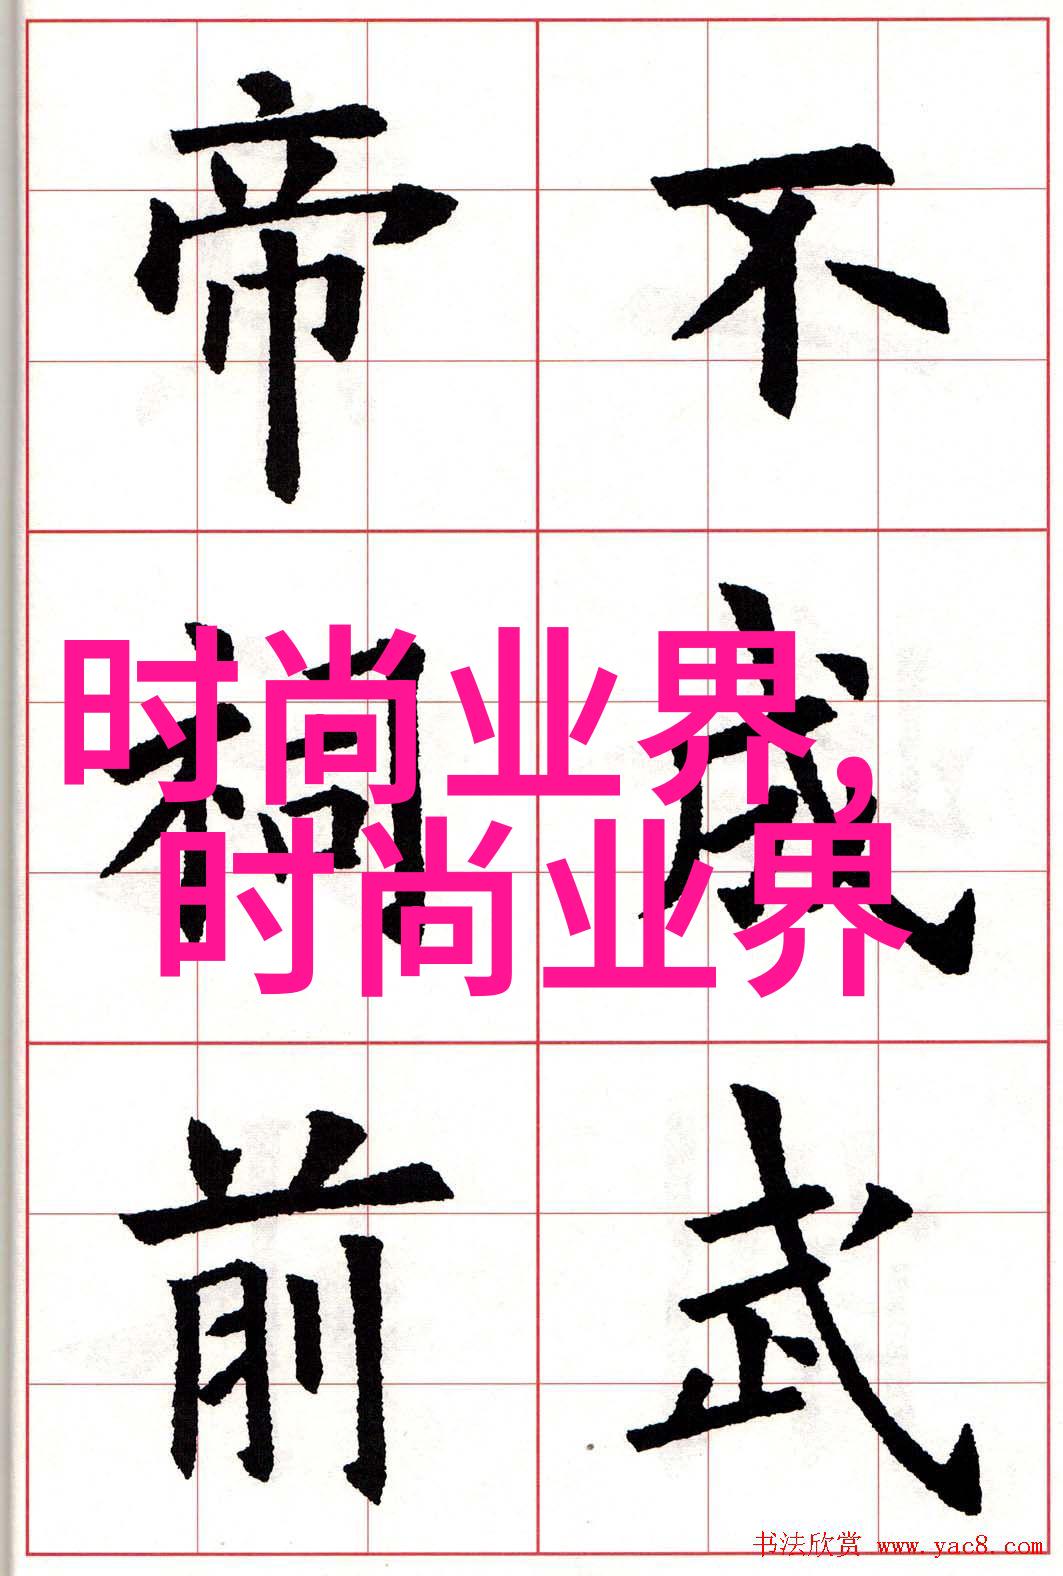 不武
帝前
时尚业界,
时尚业界
书法欣赏 www.yac8.com